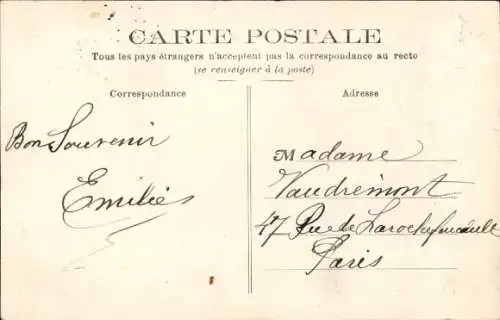 CARTE POSTALE
Tous les pays étrangers n'acceptent pas la correspondance au recto
(se renseigner à la poste)
Correspondance
Adresse
Bon Souvenir
Emilie
Madame
Vaudremont
47 Rue de Larochefoucault
Paris